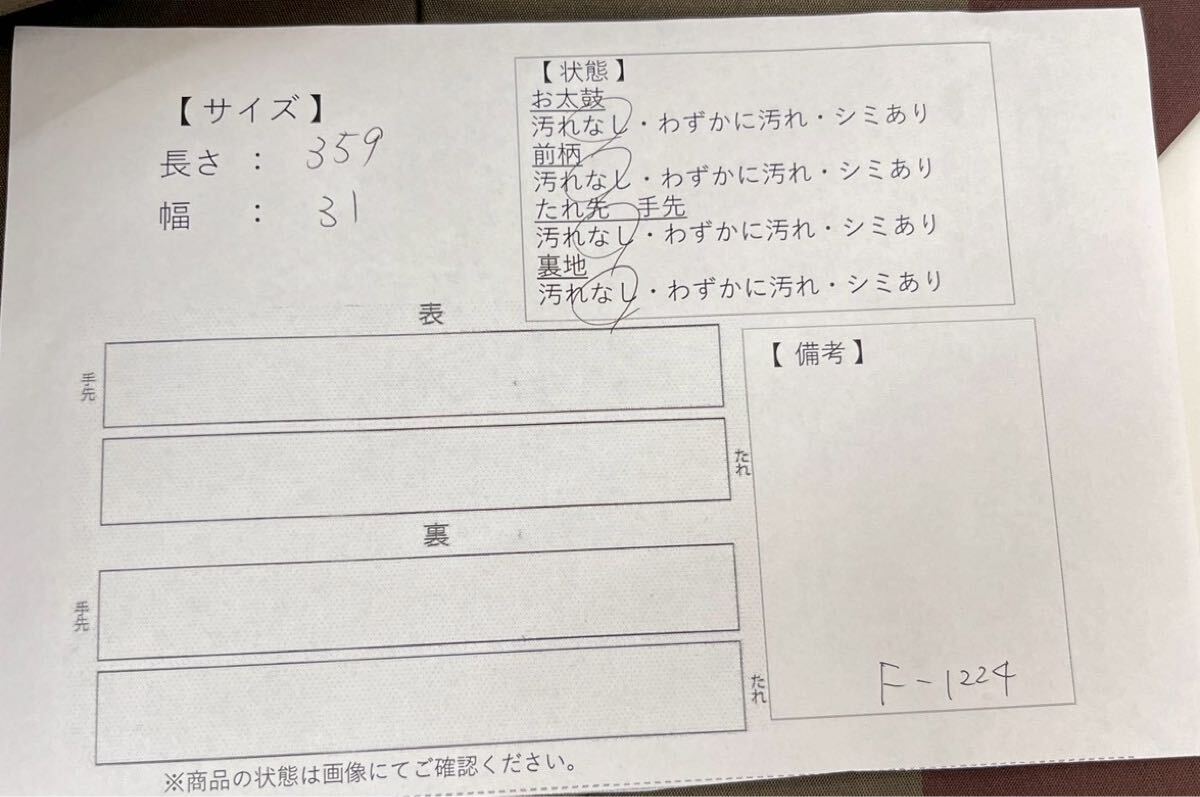 【サイズ】
長さ : 359
幅 : 31
【状態】
お太鼓
汚れなし・わずかに汚れ・シミあり
前柄
汚れなし・わずかに汚れ・シミあり
たれ先 手先
汚れなし・わずかに汚れ・シミあり
裏地
汚れなし・わずかに汚れ・シミあり
表
手先
たれ
裏
手先
たれ
【備考】
F-1224
※商品の状態は画像にてご確認ください。